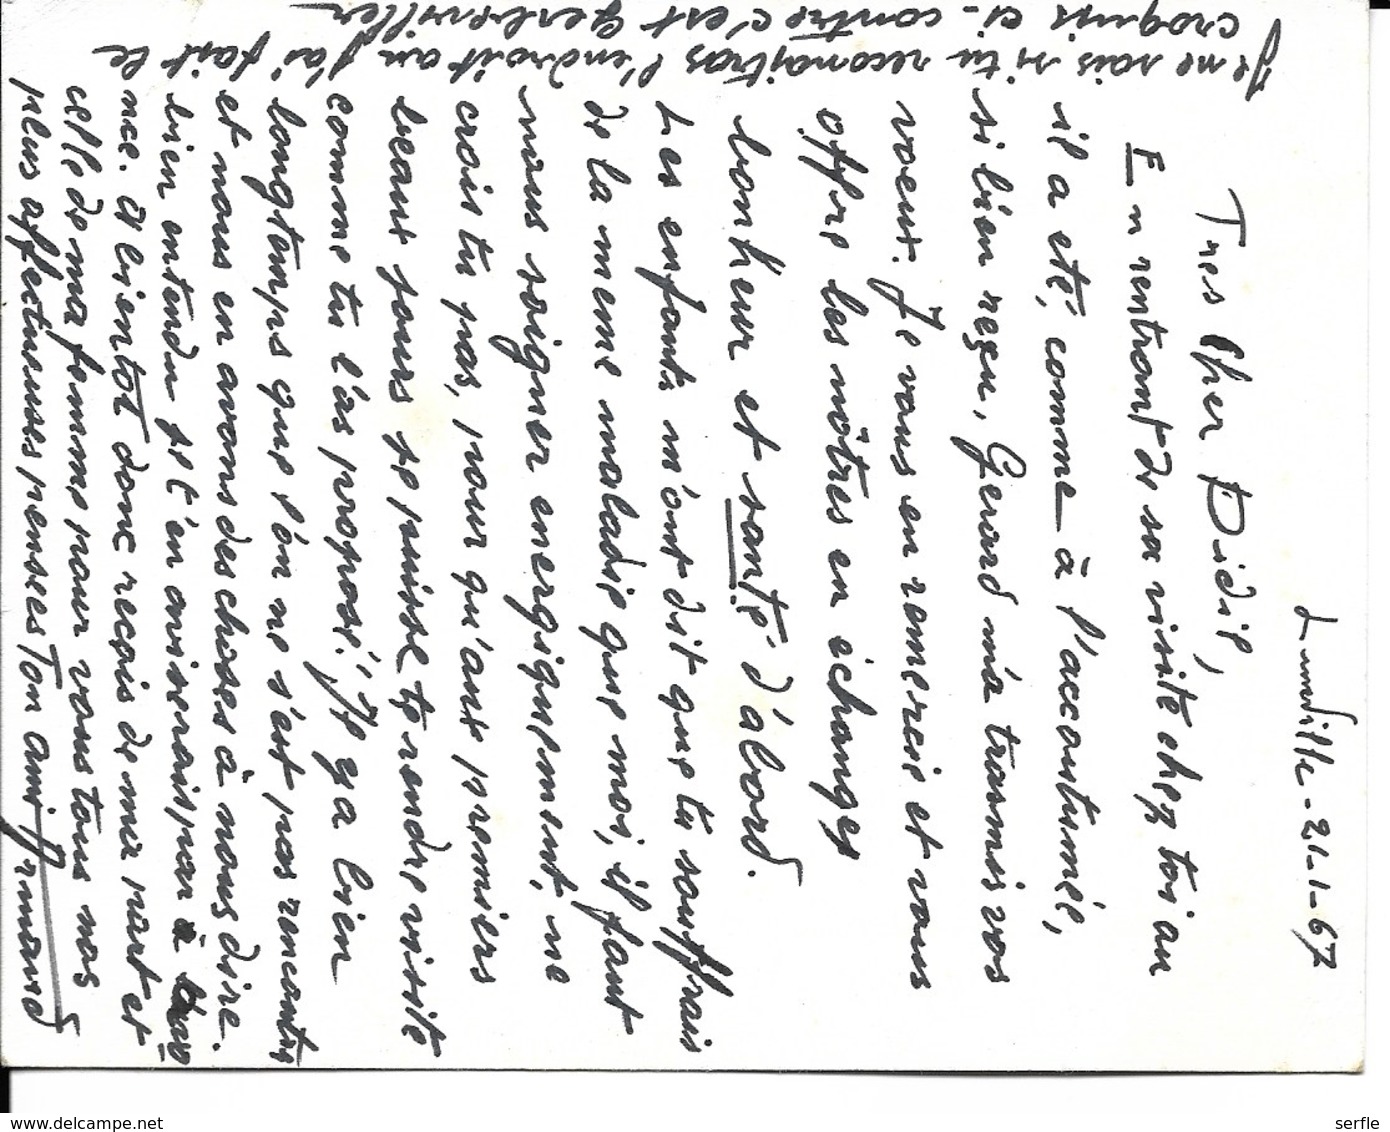 Lunéville - 21-1-67
Tres Cher Didie,
En rentrant de sa visite chez toi au
il a eté, comme à l'accoutumée,
si bien reçu, Gerard m'a transmis vos
voeux. Je vous en remercie et vous
offre les nôtres en échanges
bonheur et santé d'abord.
Les enfants m'ont dit que tu souffrais
de la meme maladie que moi, il faut
nous soigner energiquement, ne
crois tu pas, pour qu'aux premiers
beaux jours je puisse te rendre visite
comme tu l'as proposé! Il y a bien
longtemps que l'on ne s'est pas rencontré
et nous en avons des choses à nous dire.
bien entendu je t'en aviserais par à
nce. A bientôt donc reçois de ma part et
celle de ma femme pour vous tous nos
plus affectueuses pensées Ton ami Armand
Je ne sais si tu reconaitras l'endroit ou j'ai fait le
croquis ci-contre c'est Gerbeviller
www.delcampe.net
serfle